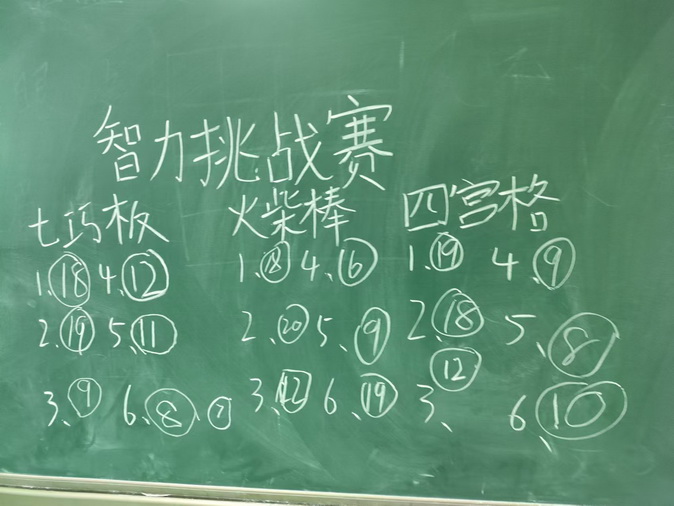 智力挑战赛
七巧板 火柴棒 四宫格
1.⑱ 4.⑫ 1.⑱ 4、⑯ 1.⑲ 4、⑨
2.⑲ 5、⑪ 2、⑳ 5、⑨ 2.⑱ 5、⑧
3、⑨ 6、⑧、⑦ 3、⑫ 6、⑲ 3、⑫ 6、⑩